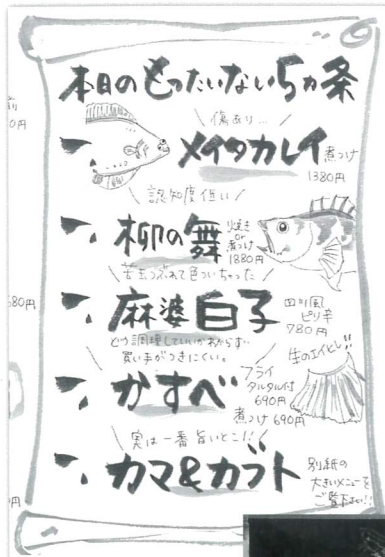 本日のもったいない5ヵ条
傷あり…
一、メイタカレイ 煮つけ
1380円
認知度低い
一、柳の舞 焼き
or
煮つけ
1880円
苦玉つぶれて色ついちゃった
一、麻婆白子 四川風
ピリ辛
780円
どう調理していいかわからず
買い手がつきにくい。
生のエイヒレ!!
一、かすべ フライ
タルタル付
690円
煮つけ 690円
実は一番旨いとこ!!
一、カマ&カブト 別紙の
大きいメニューを
ご覧下さい!!
0円
680円
円